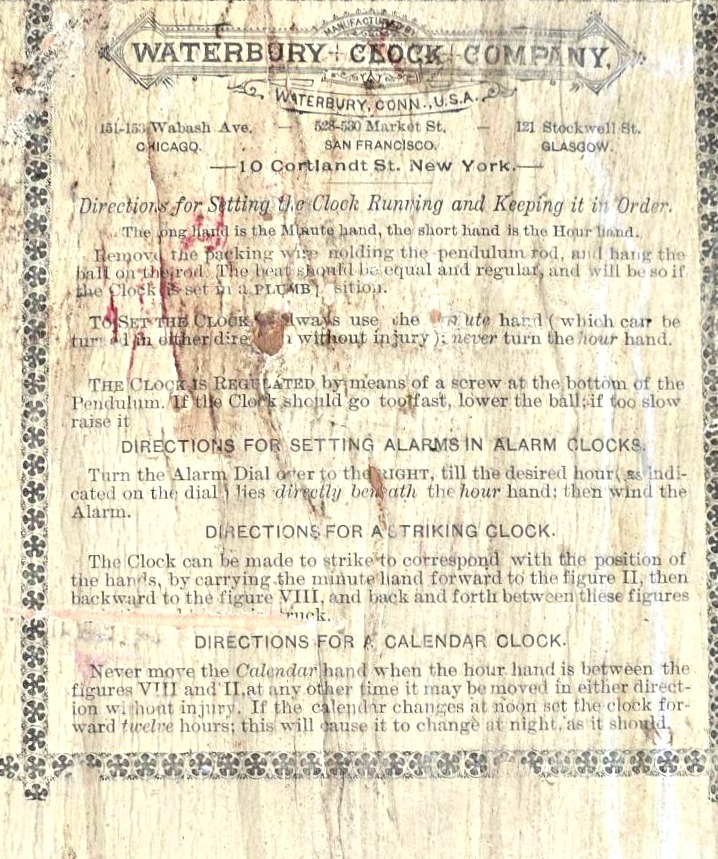 MANUFACTURED BY
WATERBURY CLOCK COMPANY,
WATERBURY, CONN., U.S.A.
151-153 Wabash Ave. — 528-530 Market St. — 121 Stockwell St.
CHICAGO. SAN FRANCISCO. GLASGOW.
—10 Cortlandt St. New York.—
Directions for Setting the Clock Running and Keeping it in Order.
The long hand is the Minute hand, the short hand is the Hour hand.
Remove the packing wire holding the pendulum rod, and hang the
ball on the rod. The beat should be equal and regular, and will be so if
the Clock is set in a PLUMB sition.
TO SET THE CLOCK lways use the ute hand (which can be
turned in either dire n without injury); never turn the hour hand.
THE CLOCK IS REGULATED by means of a screw at the bottom of the
Pendulum. If the Clock should go too fast, lower the ball; if too slow
raise it
DIRECTIONS FOR SETTING ALARMS IN ALARM CLOCKS.
Turn the Alarm Dial over to the RIGHT, till the desired hour (as indi-
cated on the dial) lies directly beneath the hour hand; then wind the
Alarm.
DIRECTIONS FOR A STRIKING CLOCK.
The Clock can be made to strike to correspond with the position of
the hands, by carrying the minute hand forward to the figure II, then
backward to the figure VIII, and back and forth between these figures
ruck.
DIRECTIONS FOR A CALENDAR CLOCK.
Never move the Calendar hand when the hour hand is between the
figures VIII and II, at any other time it may be moved in either direct-
ion without injury. If the calendar changes at noon set the clock for-
ward twelve hours; this will cause it to change at night, as it should.